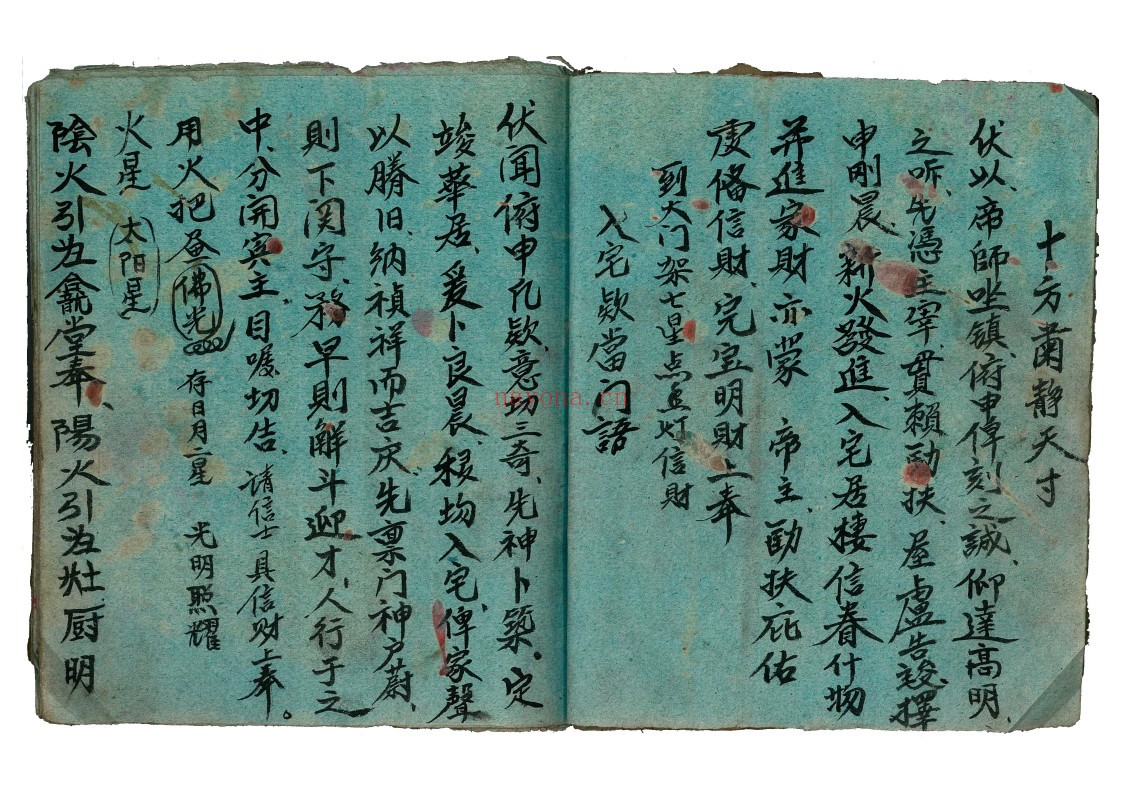 十方肅靜天寸
伏以、帝師坐镇、俯申俾刻之誠、仰達高明、
之听、先憑主宰、貫賴勛扶、屋盧告竣、擇
申刚晨、新火發進、入宅居棲信眷什物
并進家財亦蒙 帝主、勛扶庇佑
虔俻信財、完宝明財上奉
到大门架七星点圭灯信財
入宅欵當门語
伏聞俯申凡欵、意切三奇、先神卜築。定
竣華居、爰卜良晨、移均入宅、俾家聲
以勝旧、納禎祥而吉庆、先禀门神户蔚、
則下関守、務早則解斗迎才、人行于之
中、分開賓主。目嘱、切告、請信士具信财上奉。
用火把昼佛光 存日月二星 光明照耀
火星 太阳星
陰火引为龕堂奉、陽火引为灶厨明
nuoha.cn